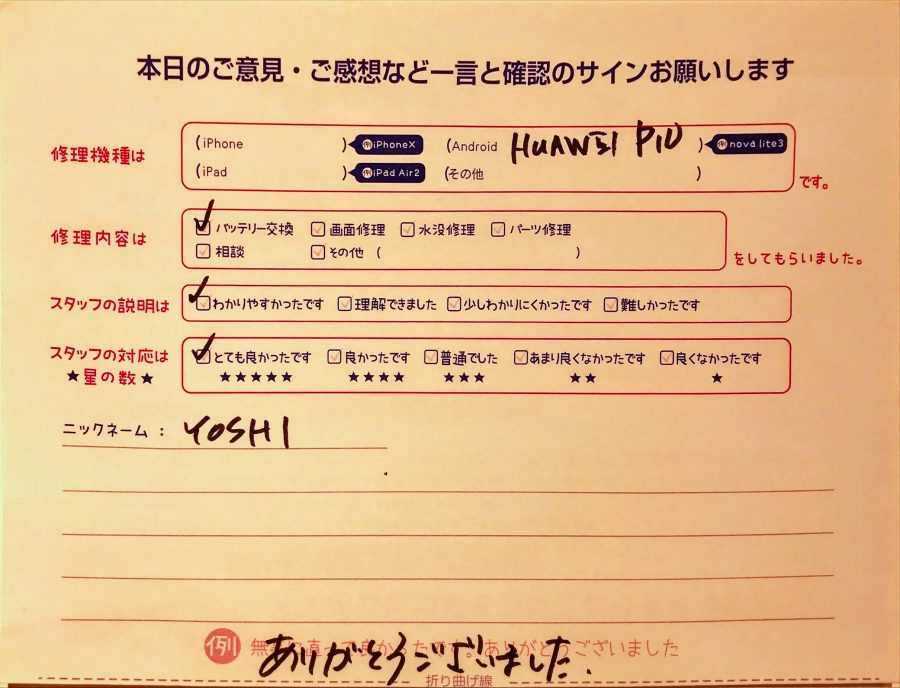 本日のご意見・ご感想など一言と確認のサインお願いします
修理機種は (iPhone ) 例 iPhoneX (Android HUAWEI P10 ) 例 nova lite3
(iPad ) 例 iPad Air2 (その他 ) です。
修理内容は バッテリー交換 画面修理 水没修理 パーツ修理
相談 その他 ( ) をしてもらいました。
スタッフの説明は わかりやすかったです 理解できました 少しわかりにくかったです 難しかったです
スタッフの対応は とても良かったです 良かったです 普通でした あまり良くなかったです 良くなかったです
★星の数★ ★★★★★ ★★★★ ★★★ ★★ ★
ニックネーム： YOSHI
例 無 に直 て良かったです。ありがとうございました
ありがとうございました.
折り曲げ線